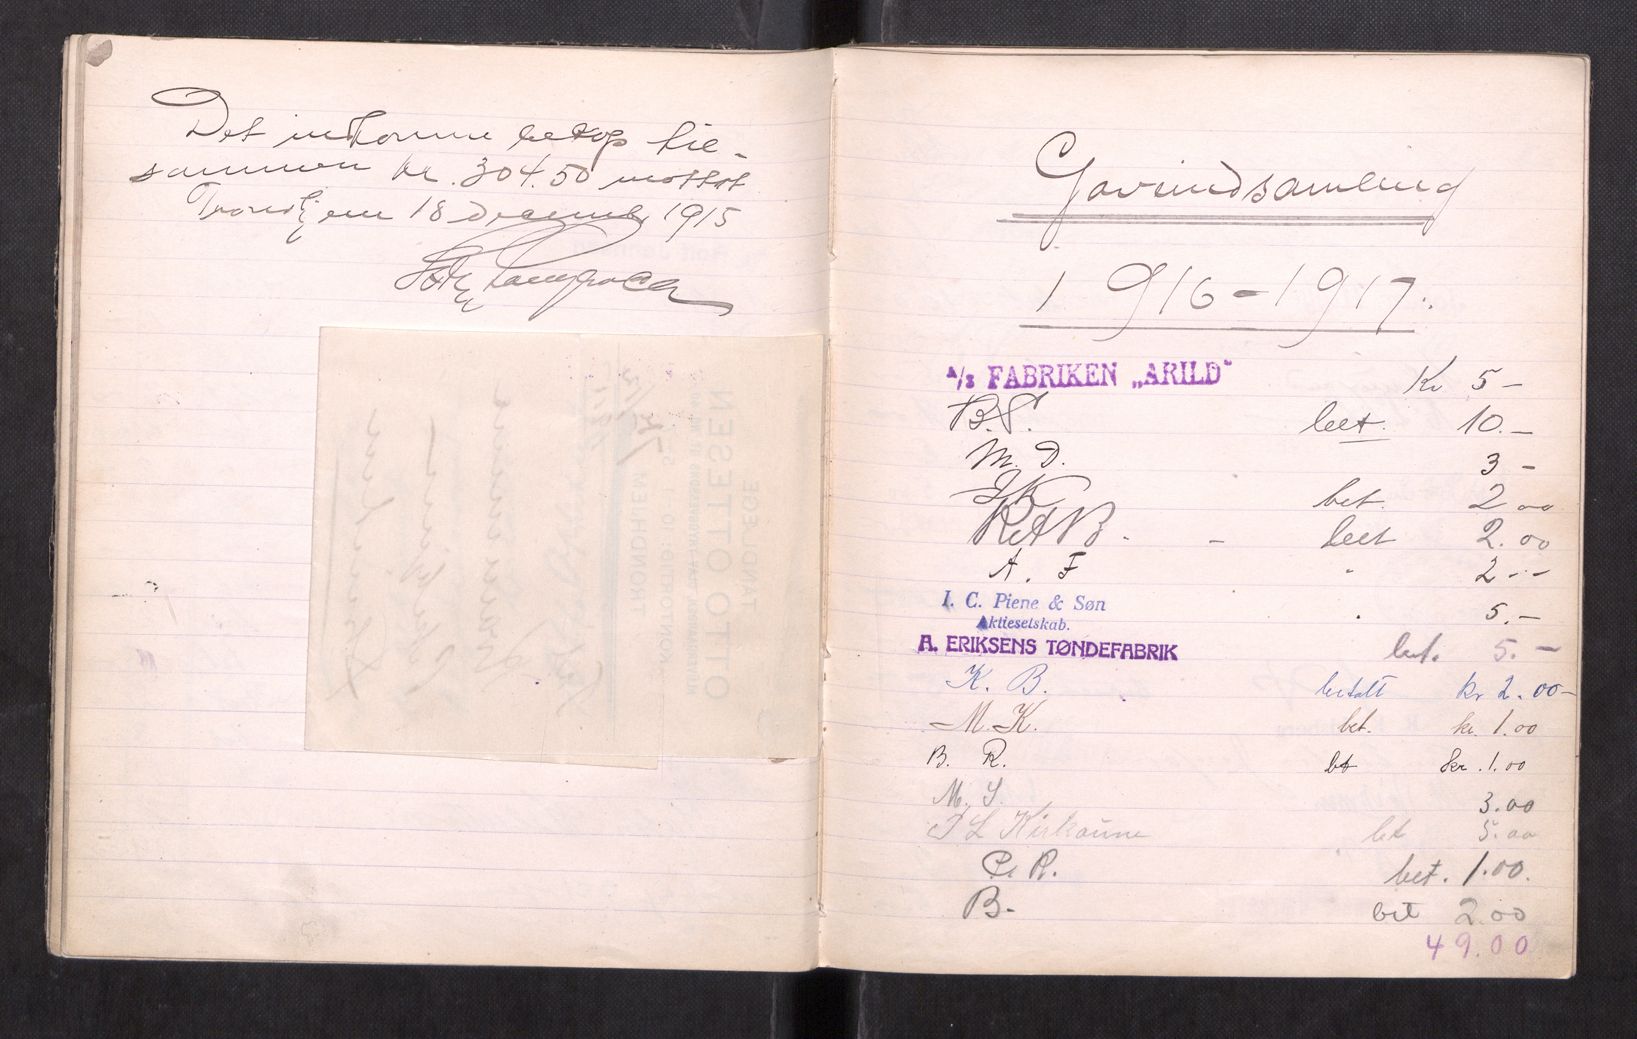 Det inkomne beløp til-
sammen kr. 304.50 mottat
Trondhjem 18 decembr 1915
Gaveindsamling
1916-1917.
A/S FABRIKEN „ARILD" Kr 5 –
B. S. bet. 10.–
M. D. 3 –
bet. 2 00
R & B. – bet 2.00
A. F " 2 --
I. C. Piene & Søn " 5.–
Aktieselskab.
A. ERIKSENS TØNDEFABRIK bet. 5. –
K. B. betalt kr 2.00–
M. K. bet. kr. 1.00
B. R. bt kr. 1.00
M. S. 3.00
L Kirkaune bet 5.00
R. bet. 1.00.
B. bet 2.00
49.00
OTTO OTTESEN
TANDLÆGE
KONTORTID 10-1
TRONDHJEM